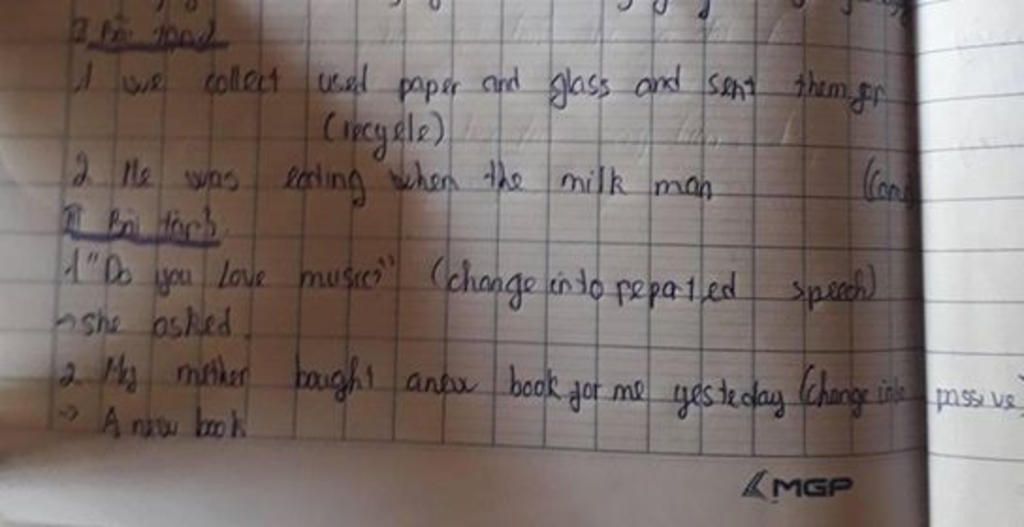 1 we collect used paper and glass and sent them for
(recycle)
2 He was eating when the milk man (com
II Bài
1 "Do you love music?" (change into repated speech)
→ she asked
2 My mother bought anew book for me yesteday (change into passive)
→ A new book
MGP